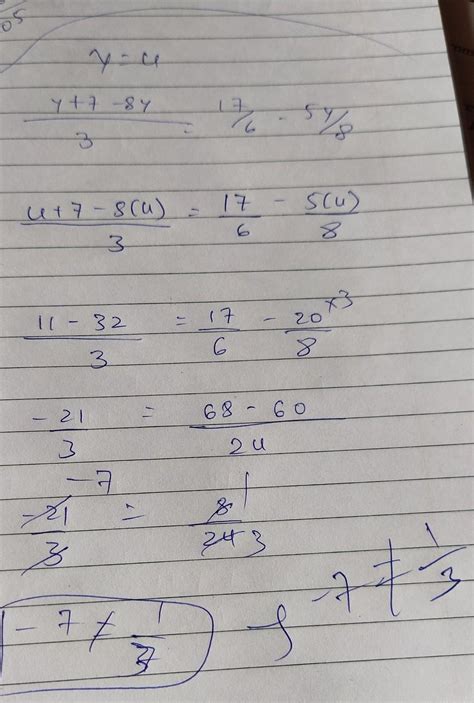 05
y = 4
y+7-8y/3 = 17/6 - 5y/8
4+7-8(4)/3 = 17/6 - 5(4)/8
11-32/3 = 17/6 - 20/8 ×3
-21/3 = 68-60/24
-7 1
-21/3 = 8/24 3
-7 ≠ 1/3 -7 ≠ 1/3